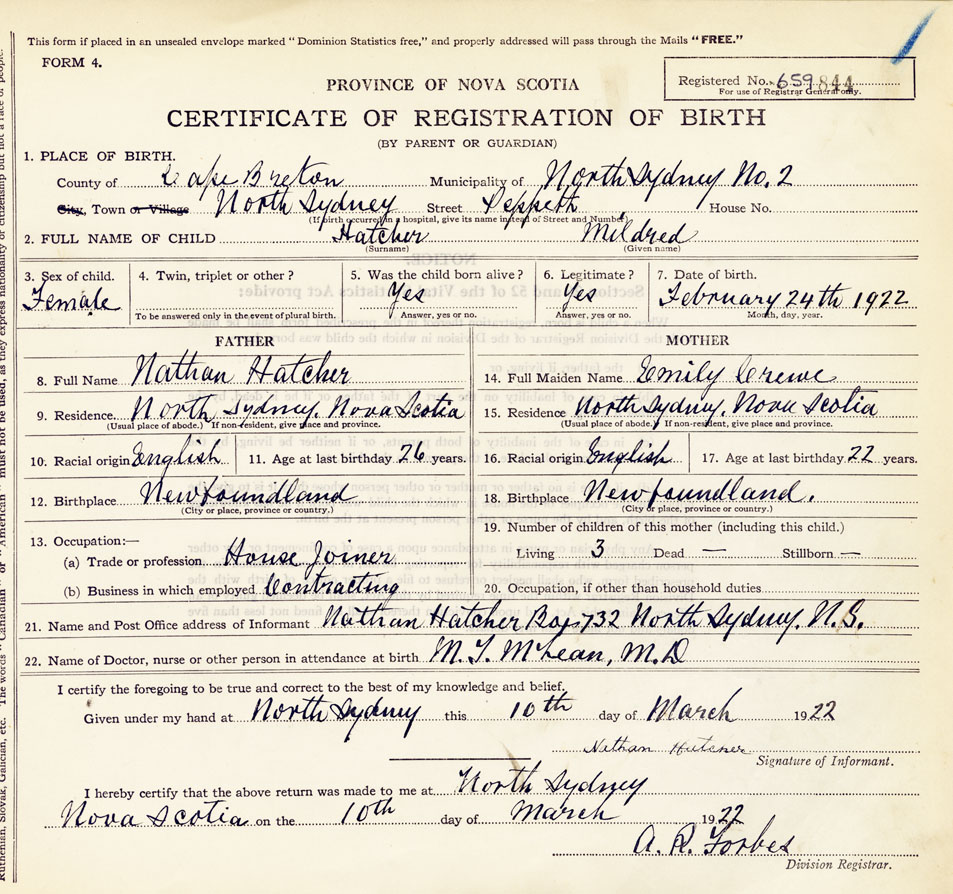 This form if placed in an unsealed envelope marked "Dominion Statistics free," and properly addressed will pass through the Mails "FREE."
FORM 4.
PROVINCE OF NOVA SCOTIA
Registered No. 659 844
For use of Registrar General only.
CERTIFICATE OF REGISTRATION OF BIRTH
(BY PARENT OR GUARDIAN)
1. PLACE OF BIRTH.
County of Cape Breton Municipality of North Sydney No. 2
City, Town or Village North Sydney Street Peppeth House No.
(If birth occurred in a hospital, give its name instead of Street and Number)
2. FULL NAME OF CHILD Hatcher Mildred
(Surname) (Given name)
3. Sex of child. 4. Twin, triplet or other? 5. Was the child born alive? 6. Legitimate? 7. Date of birth.
Female Yes Yes February 24th 1922
To be answered only in the event of plural birth. Answer, yes or no. Answer, yes or no. Month, day, year.
FATHER MOTHER
8. Full Name Nathan Hatcher 14. Full Maiden Name Emily Crewe
9. Residence North Sydney. Nova Scotia 15. Residence North Sydney. Nova Scotia
(Usual place of abode.) If non-resident, give place and province. (Usual place of abode.) If non-resident, give place and province.
10. Racial origin English 11. Age at last birthday 26 years. 16. Racial origin English 17. Age at last birthday 22 years.
12. Birthplace Newfoundland 18. Birthplace Newfoundland.
(City or place, province or country.) (City or place, province or country.)
19. Number of children of this mother (including this child.)
13. Occupation:—
(a) Trade or profession House Joiner Living 3 Dead — Stillborn —
(b) Business in which employed Contracting 20. Occupation, if other than household duties
21. Name and Post Office address of Informant Nathan Hatcher Box 732 North Sydney. N.S.
22. Name of Doctor, nurse or other person in attendance at birth M. T. McLean, M.D
I certify the foregoing to be true and correct to the best of my knowledge and belief.
Given under my hand at North Sydney this 10th day of March 1922
Nathan Hatcher
Signature of Informant.
I hereby certify that the above return was made to me at North Sydney
Nova Scotia on the 10th day of March 1922
A. R. Forbes
Division Registrar.
Ruthenian, Slovak, Galician, etc. The words "Canadian" or "American" must not be used, as they express nationality or citizenship but not a race of people.